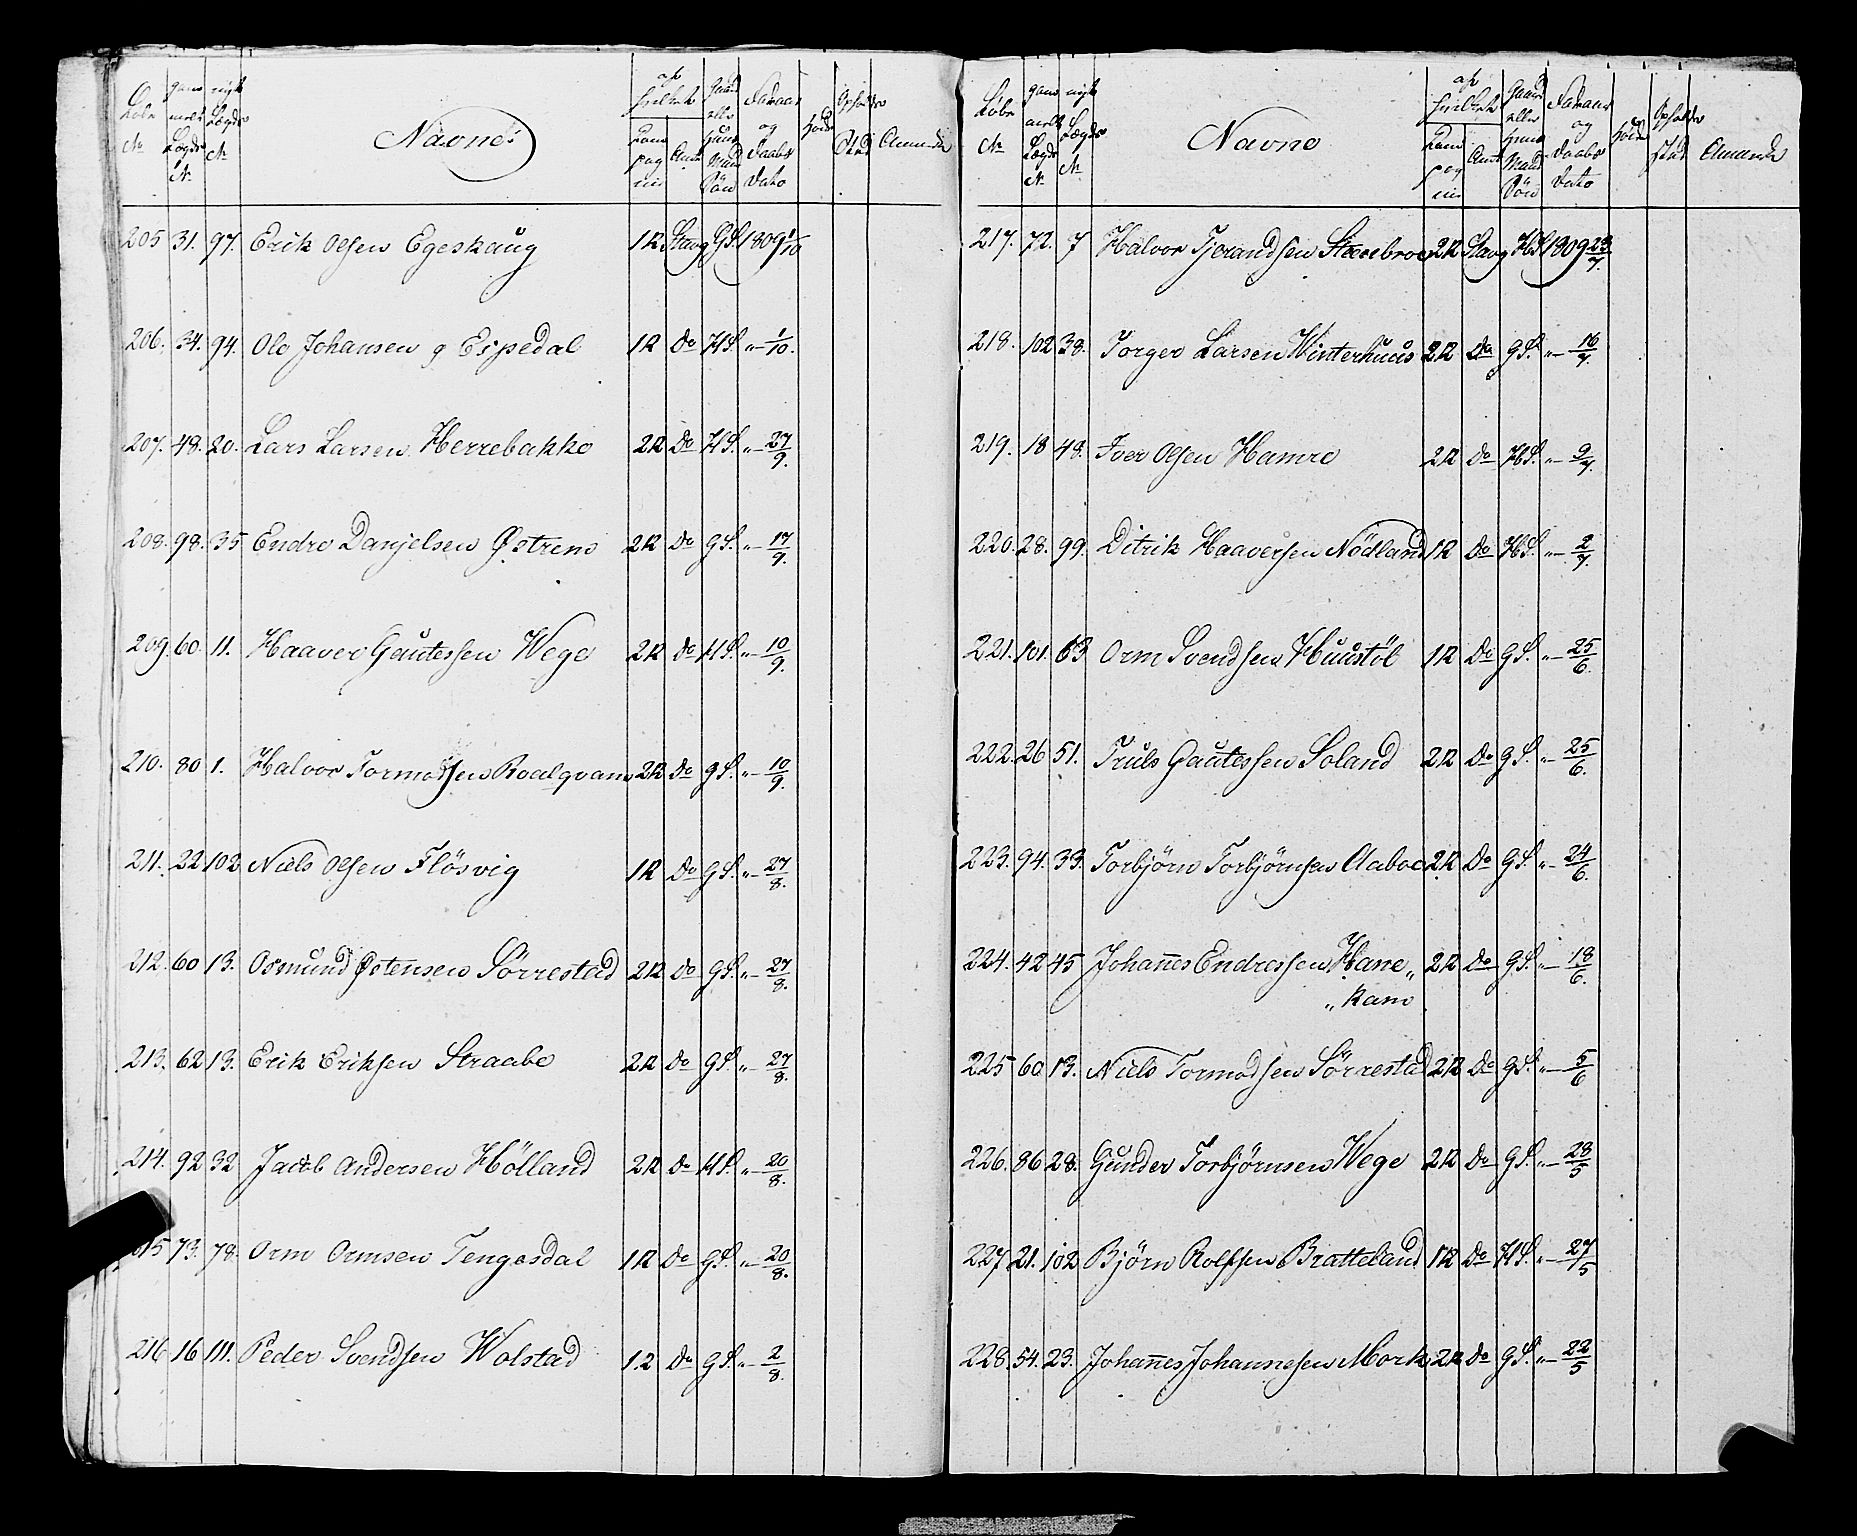 Løbe № gam melt Lægds № nyt Lægds № Navne af hvilket Kom pag nie Amt Gaard eller Huus Mand Søn Fødaar og Daabs Dato Høide Opholds Stad Anmærk
205 31. 97. Erik Olsen Egeskaug 1K Stavg GS. 1809 1/10
206. 34. 94. Ole Johansen g Espedal 1K Do HS. „ 1/10.
207. 48. 20. Lars Larsen Herrebakke 2K Do HS. „ 27/9.
208. 98. 35 Endre Danjelsen Østrem 2K Do GS. „ 17/9.
209. 60. 11. Haaver Gautessen Wege 2K Do HS. „ 10/9.
210. 80 1. Halvor Tormodsen Roalqvam 2K Do GS. „ 10/9.
211. 22 102 Niels Olsen Flösvig 1K Do GS. „ 27/8.
212. 60 13. Osmund Østensen Sörrestad 2K Do GS. „ 27/8.
213. 62 13. Erik Eriksen Straabe 2K Do GS. „ 27/8.
214. 92 32 Jacob Andersen Hölland 2K Do HS. „ 20/8.
215 73. 78. Orm Ormsen Tengesdal 1K Do GS. „ 20/8.
216 16 111. Peder Svendsen Wolstad 1.2 Do GS. „ 2/8.
Løbe № gam melt Lægds № nyt Lægds № Navne af hvilket Kom pag nie Amt Gaard eller Huus Mand Søn Fødaar og Daabs Dato Høide Opholds stad Anmærk
217. 72. 7 Halvor Tjerandsen Steenebroe 2K Stavg HS 1809 23/7.
218. 102 38. Torger Larsen Winterhuus 2K Do GS. „ 16/7.
219. 18 48. Iver Olsen Hamre 2K Do HS. „ 9/7.
220. 28. 99. Ditrik Haaversen Nödland 1K Do HS. „ 2/7.
221. 101. 63 Orm Svendsen Huustöl 1K Do GS. „ 25/6.
222. 26 51. Truls Gautessen Soland 2K Do GS. „ 25/6.
223. 94. 33. Torbjörn Torbjörnsen Aaboe 2K Do GS. „ 24/6.
224. 42 45 Johan̄es Endressen Hane„ 2K Do GS. „ 18/6.
„kam
225 60 13. Niels Tormodsen Sörrestad 2K Do GS. „ 5/6
226. 86 28. Gunder Torbjörnsen Wege 2K Do GS. „ 28/5
227 21. 102 Björn Rolfsen Bratteland 1K Do HS. „ 27/5
228. 54. 23. Johan̄es Johannesen Mork 2K Do GS. „ 22/5